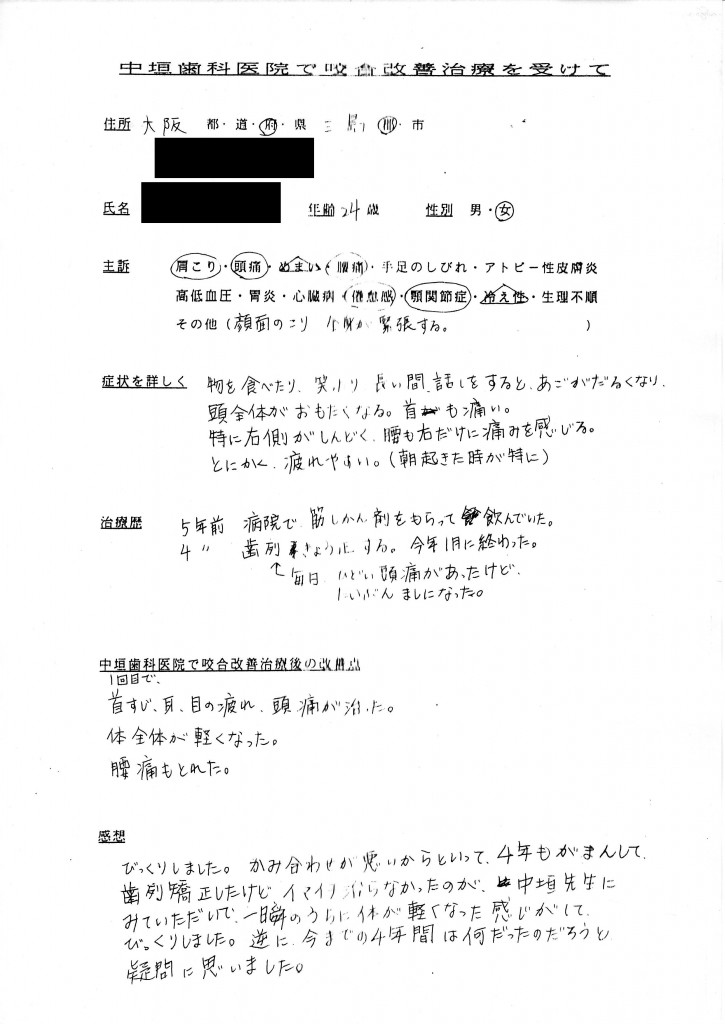 中垣歯科医院で咬合改善治療を受けて
住所 大阪 都・道・府・県 三島 郡・市
氏名 年齢 24 歳 性別 男・女
主訴 肩こり・頭痛・めまい・腰痛・手足のしびれ・アトピー性皮膚炎
高低血圧・胃炎・心臓病・倦怠感・顎関節症・冷え性・生理不順
その他(顔面のこり 全身が緊張する。 )
症状を詳しく 物を食べたり、笑ったり 長い間、話しをすると、あごがだるくなり、
頭全体がおもたくなる。首も痛い。
特に右側がしんどく、腰も右だけに痛みを感じる。
とにかく、疲れやすい。(朝起きた時が特に)
治療歴 5年前 病院で、筋しかん剤をもらって飲んでいた。
4 〃 歯列きょう正する。今年1月に終わった。
↑毎日、ひどい頭痛があったけど、
だいぶんましになった。
中垣歯科医院で咬合改善治療後の改善点
1回目で、
首すじ、耳、目の疲れ、頭痛が治った。
体全体が軽くなった。
腰痛もとれた。
感想
びっくりしました。かみ合わせが悪いからといって、4年もがまんして、
歯列矯正したけどイマイチ治らなかったのが、中垣先生に
みていただいて、一瞬のうちに体が軽くなった感じがして、
びっくりしました。逆に、今までの4年間は何だったのだろうと
疑問に思いました。